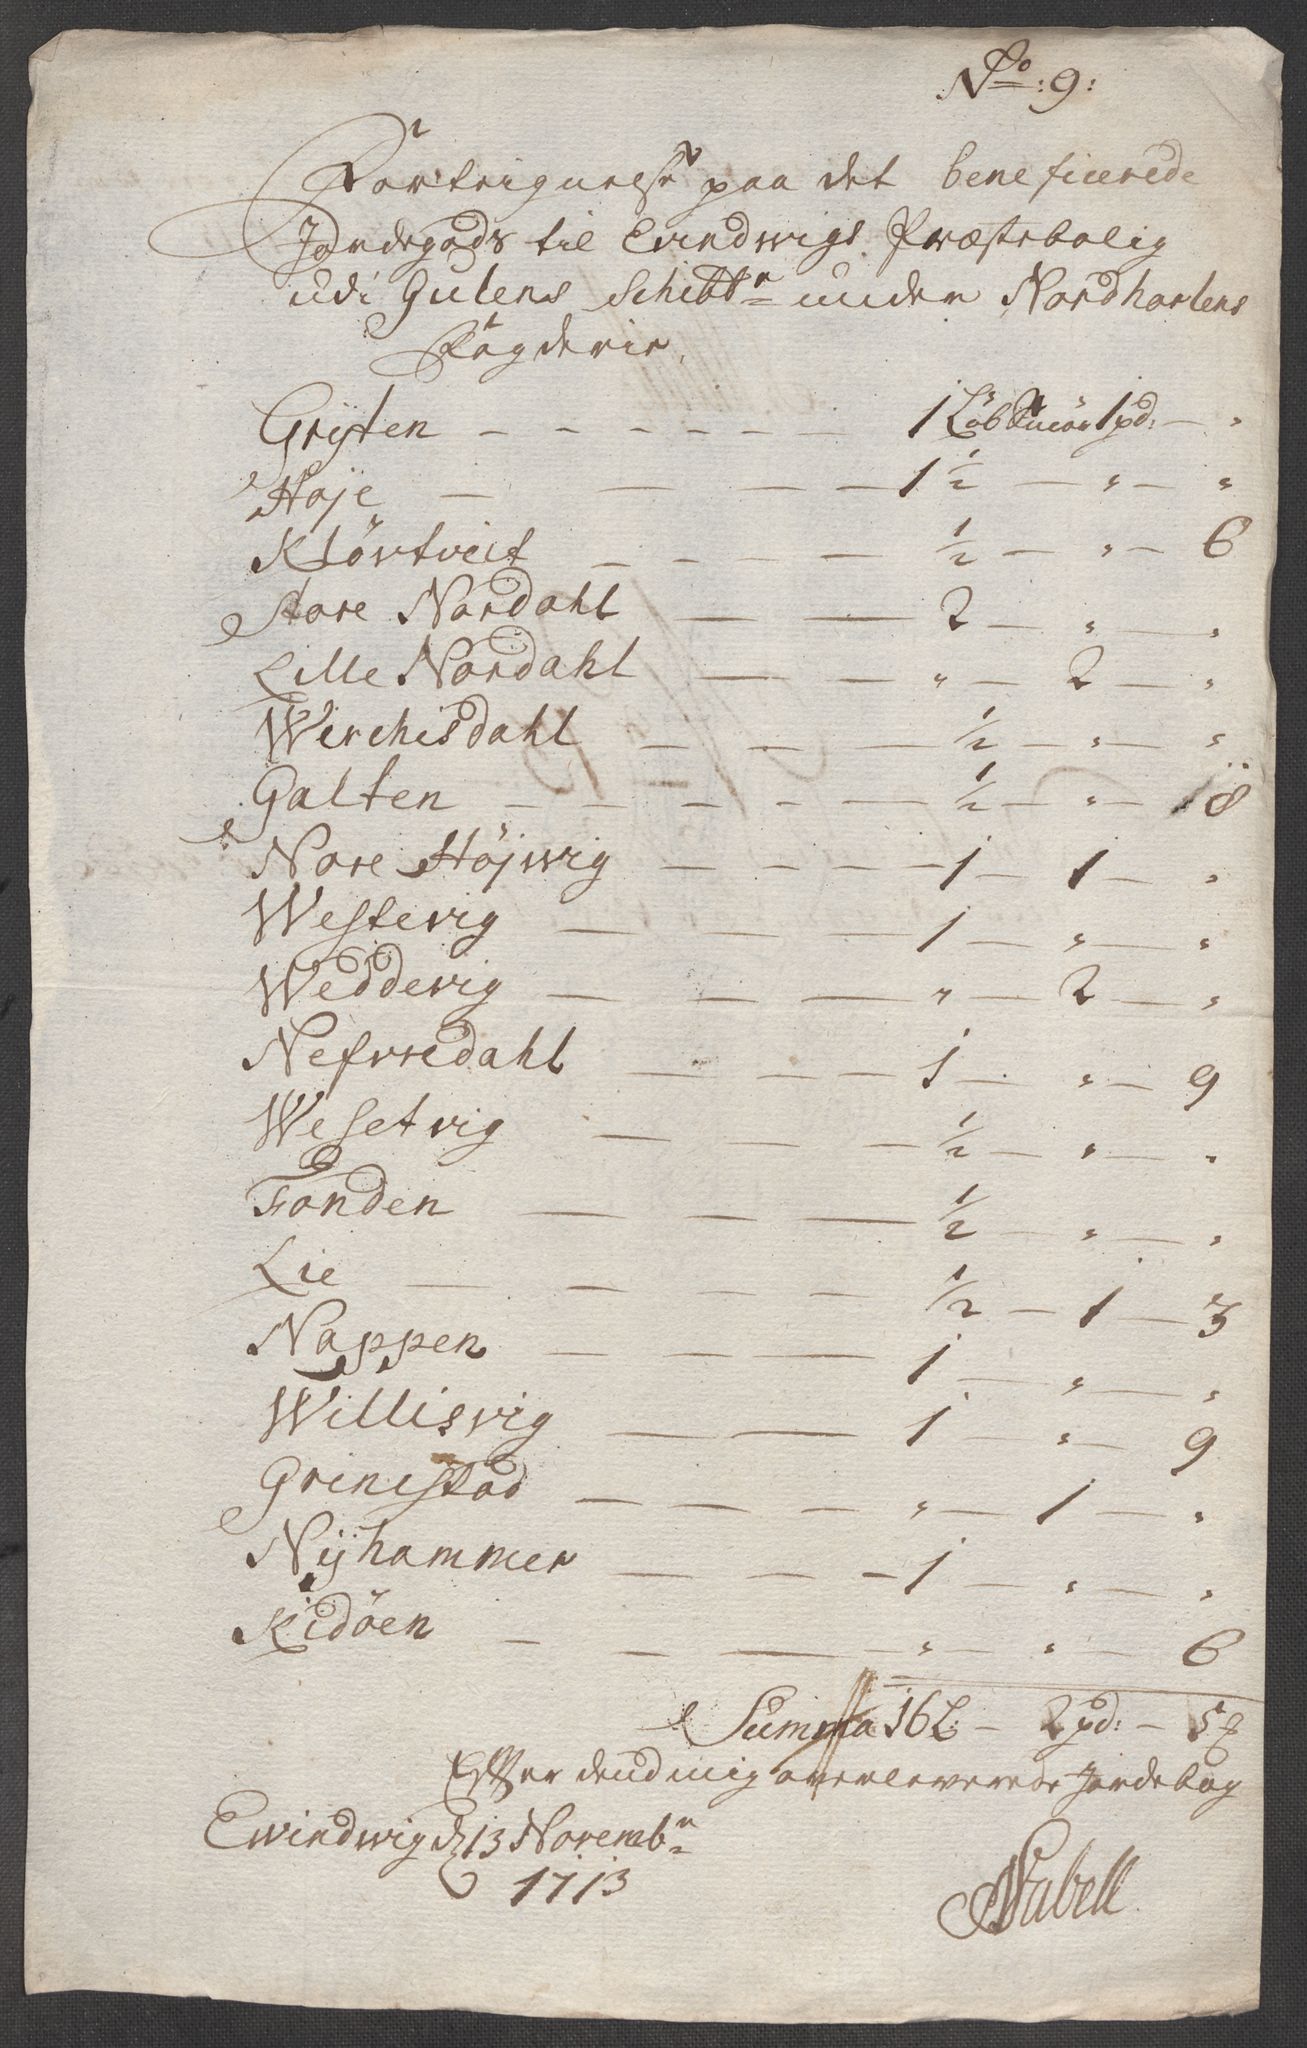 No: 9:
Forteignelse paa det beneficerede
Jordegods til Evindwigs Præstebolig
udi Gulens Schibbr. under Nordhorlens
Fögderie.
Grijten — — — — — — 1 Löb Smör 1 pd: — "
Höje — — — — 1 ½ — " — "
Klörtveit — — — — ½ — " — 6
Store Nordahl — — 2 — " — "
Lille Nordahl — — " — 2 — "
Werchisdahl — — — ½ — " — "
Galten — — — — — — ½ — " — 18
Nore Höjwig — — — — 1 — 1 — "
Westevig — — — 1 — " — "
Weddevig — — — " — 2 — "
Nefredahl — — — — 1 — " — 9
Wesetvig — — — ½ — " — "
Fonden — — — ½ — " — "
Lie — — — — ½ — 1 — 3
Nappen — — — 1 — " — "
Willisvig — — 1 — " — 9
Grinestad — — — — " — 1 — "
Nijhammer — — — 1 — " — "
Kidöen — — — " — " — 6
Summa 16 L: — 2 pd: —
Efter dend mig overleverede Jordebog
Ewindwig d. 13 Novembr.
1713
Nabell